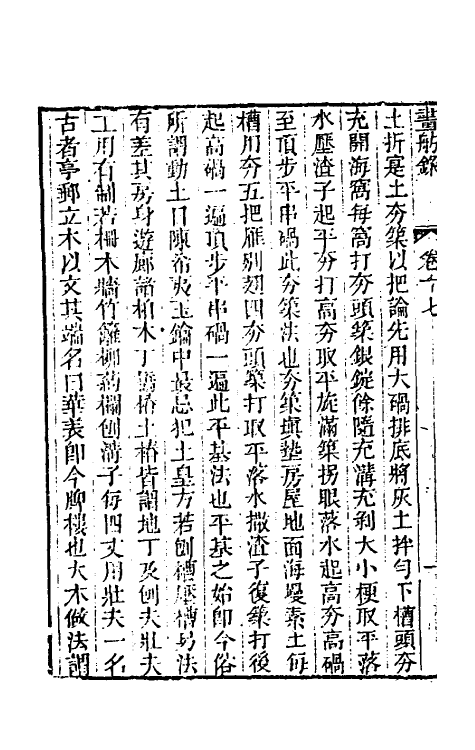 畫舫錄 卷十七 一
土折寔土夯築以把論先用大硪排底將灰土拌勻下槽頭夯
充開海窩每窩打夯頭築銀錠餘隨充溝充剁大小梗取平落
水壓渣子起平夯打高夯取平旋滿築拐眼落水起高夯高硪
至頂步平串硪此夯築法也夯築填墊房屋地面海墁素土每
槽用夯五把雁別翅四夯頭築打取平落水撒渣子復築打後
起高硪一遍頂步平串硪一遍此平基法也平基之始即今俗
所謂動土日陳希夷玉鑰中最忌犯土皇方若刨槽壓槽另法
有差其房身遊廊諸柏木丁橋椿土椿皆謂地丁及刨夫壯夫
工用有制若柵木牆竹籬柳葯欄刨溝子每四丈用壯夫一名
古者亭郵立木以文其端名曰華表即今牌樓也大木做法謂